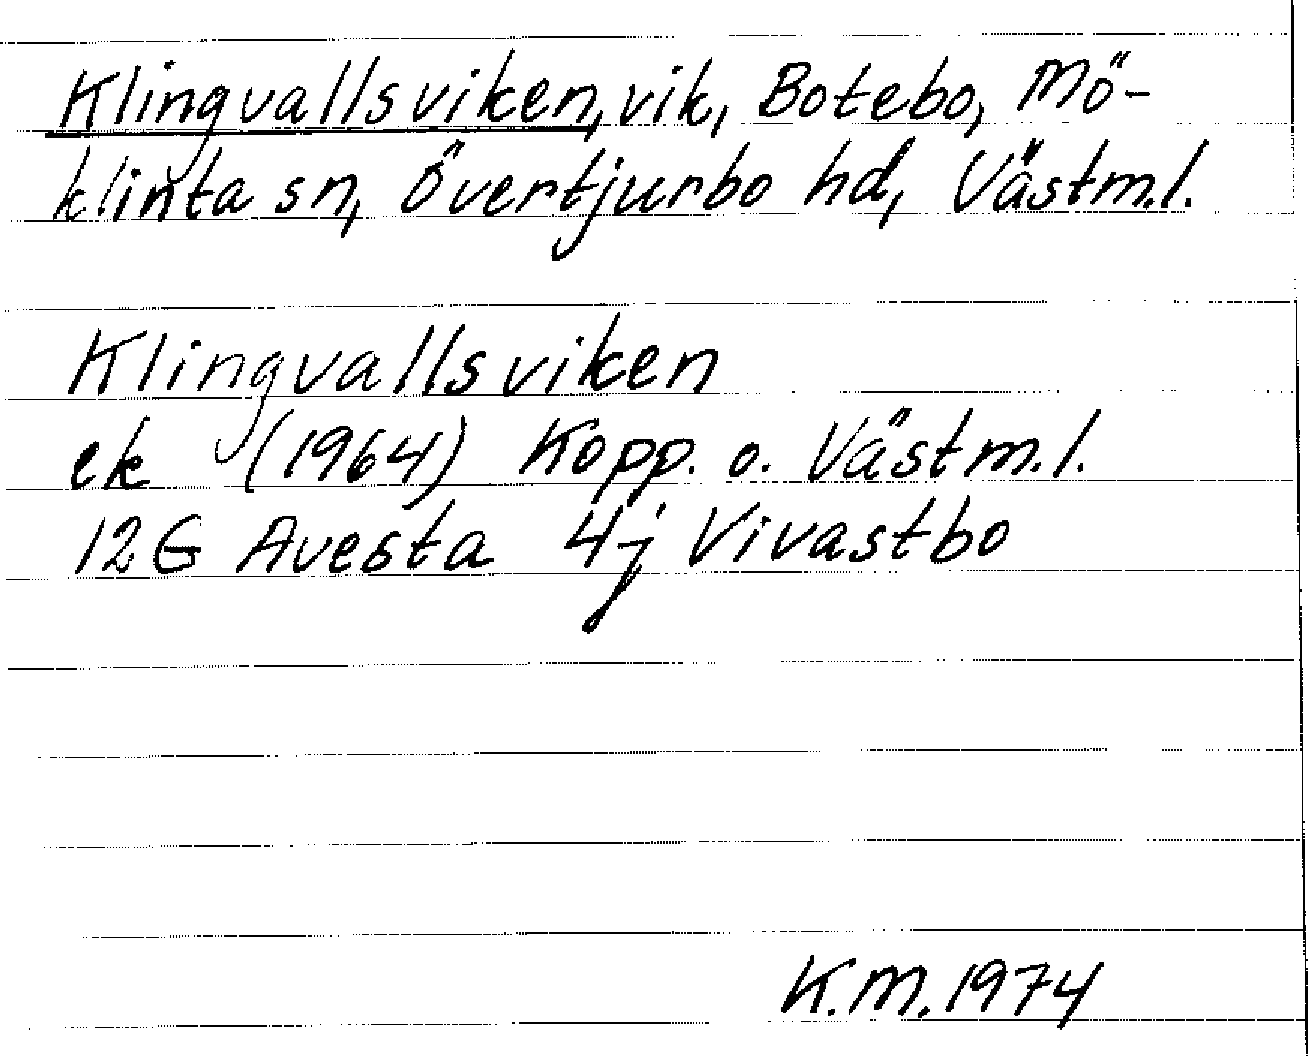 Klingvallsviken, vik, Botebo, Mö-
klinta sn, Övertjurbo hd, Västm.l.
Klingvallsviken
ek (1964) Kopp. o. Västm.l.
12G Avesta 4j Vivastbo
K.M.1974